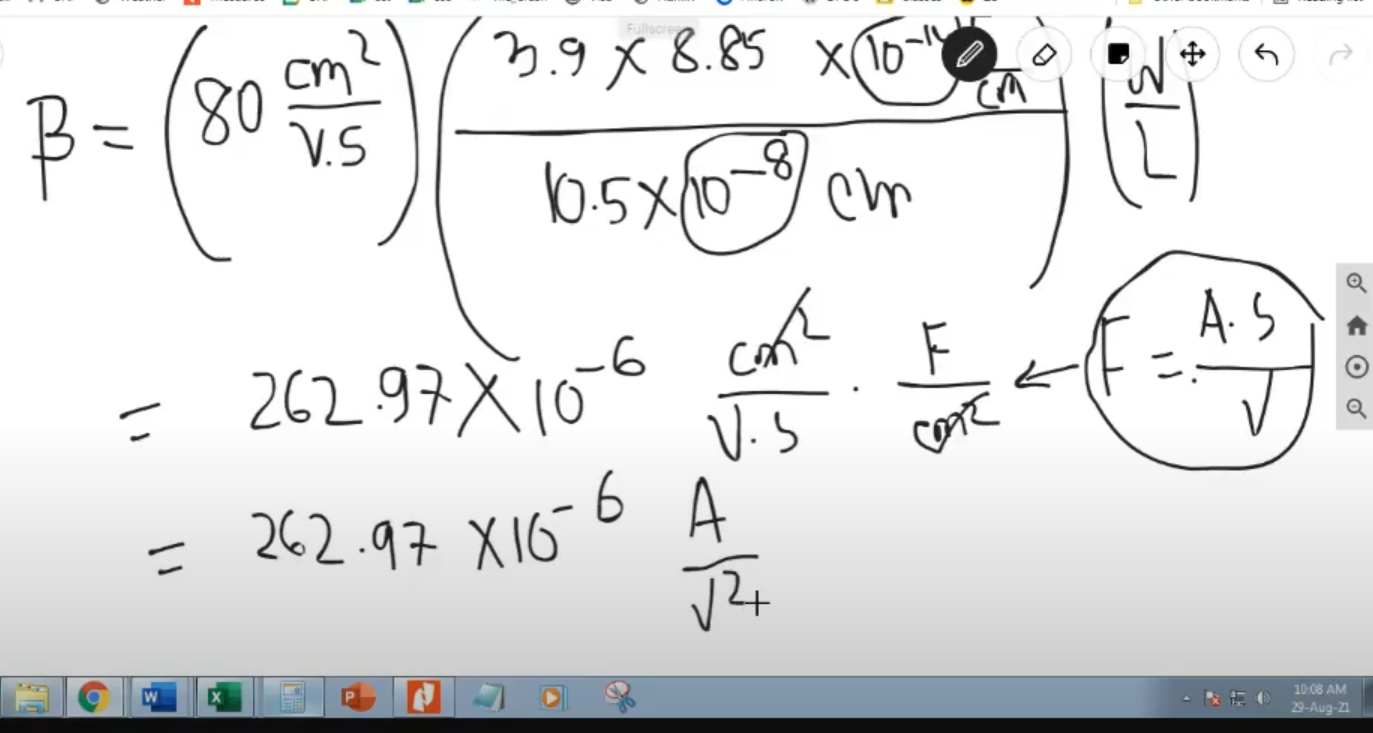 Fullscreen
β = (80 cm²/V.S) (3.9 × 8.85 × 10⁻¹⁴ F/cm / 10.5 × 10⁻⁸ cm) (W/L)
= 262.97 × 10⁻⁶ cm²/V.S · F/cm² ← F = A.S/V
= 262.97 × 10⁻⁶ A/V²
10:08 AM
29-Aug-21